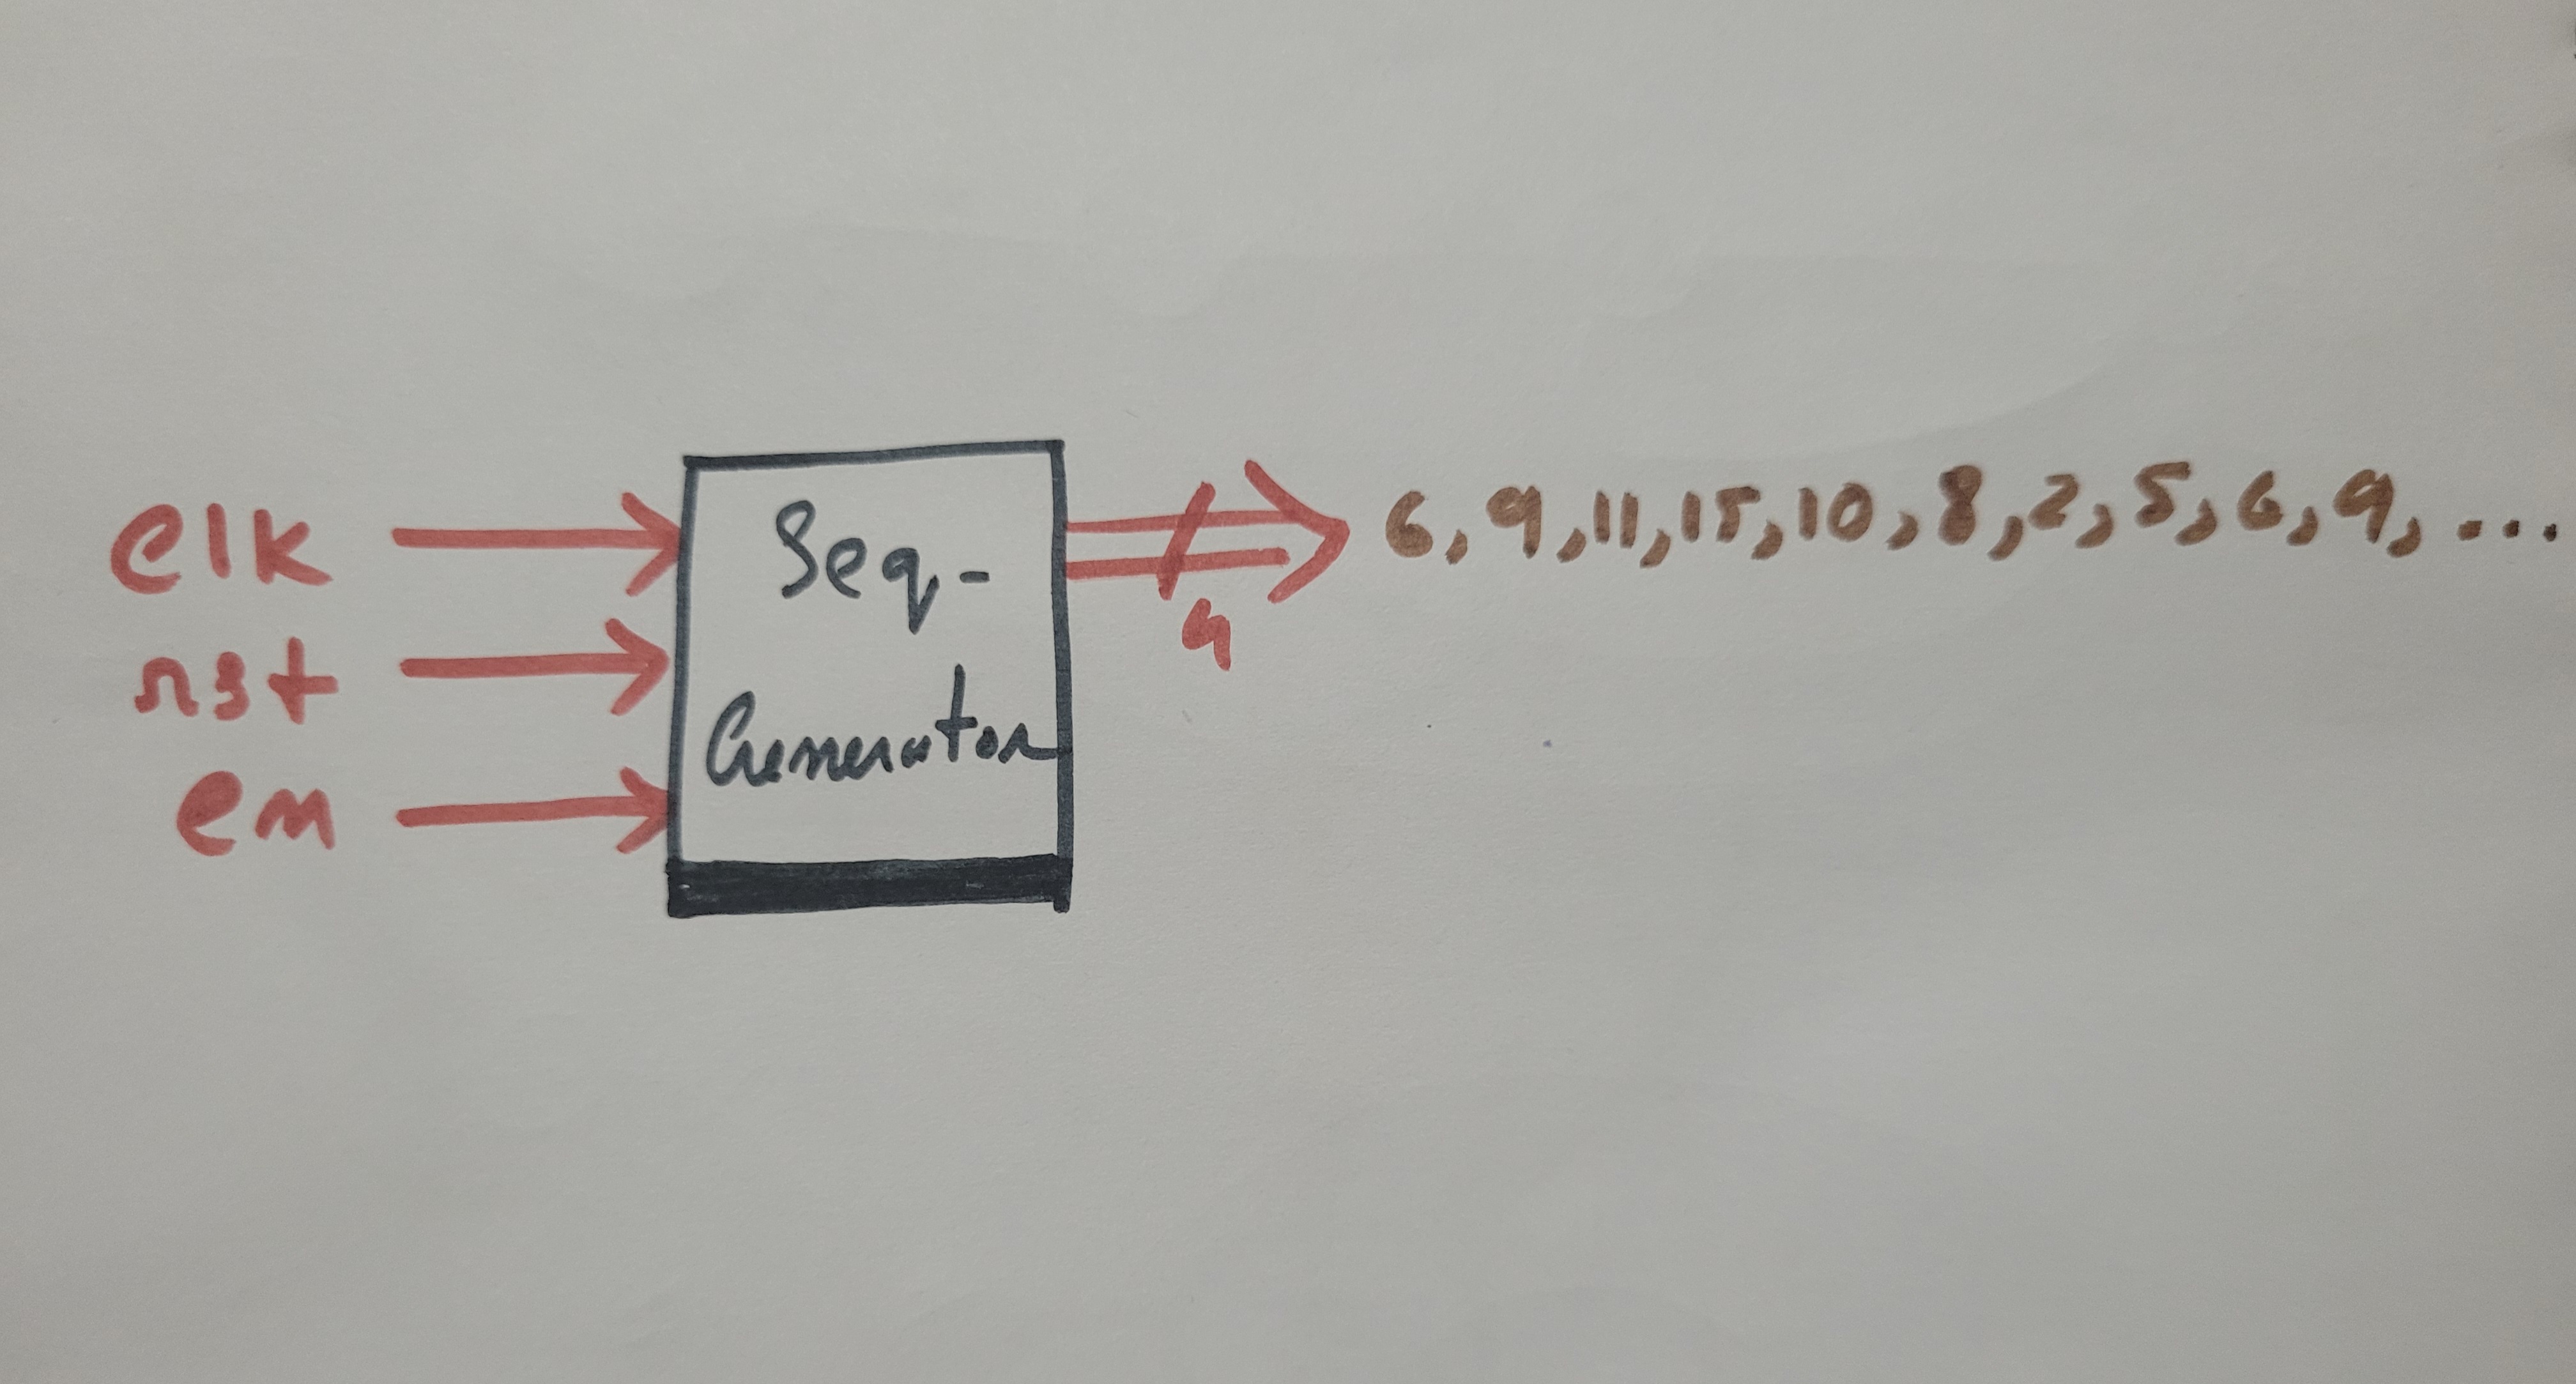 clk
rst
en
Seq-
Generator
4
6, 9, 11, 15, 10, 8, 2, 5, 6, 9, ...